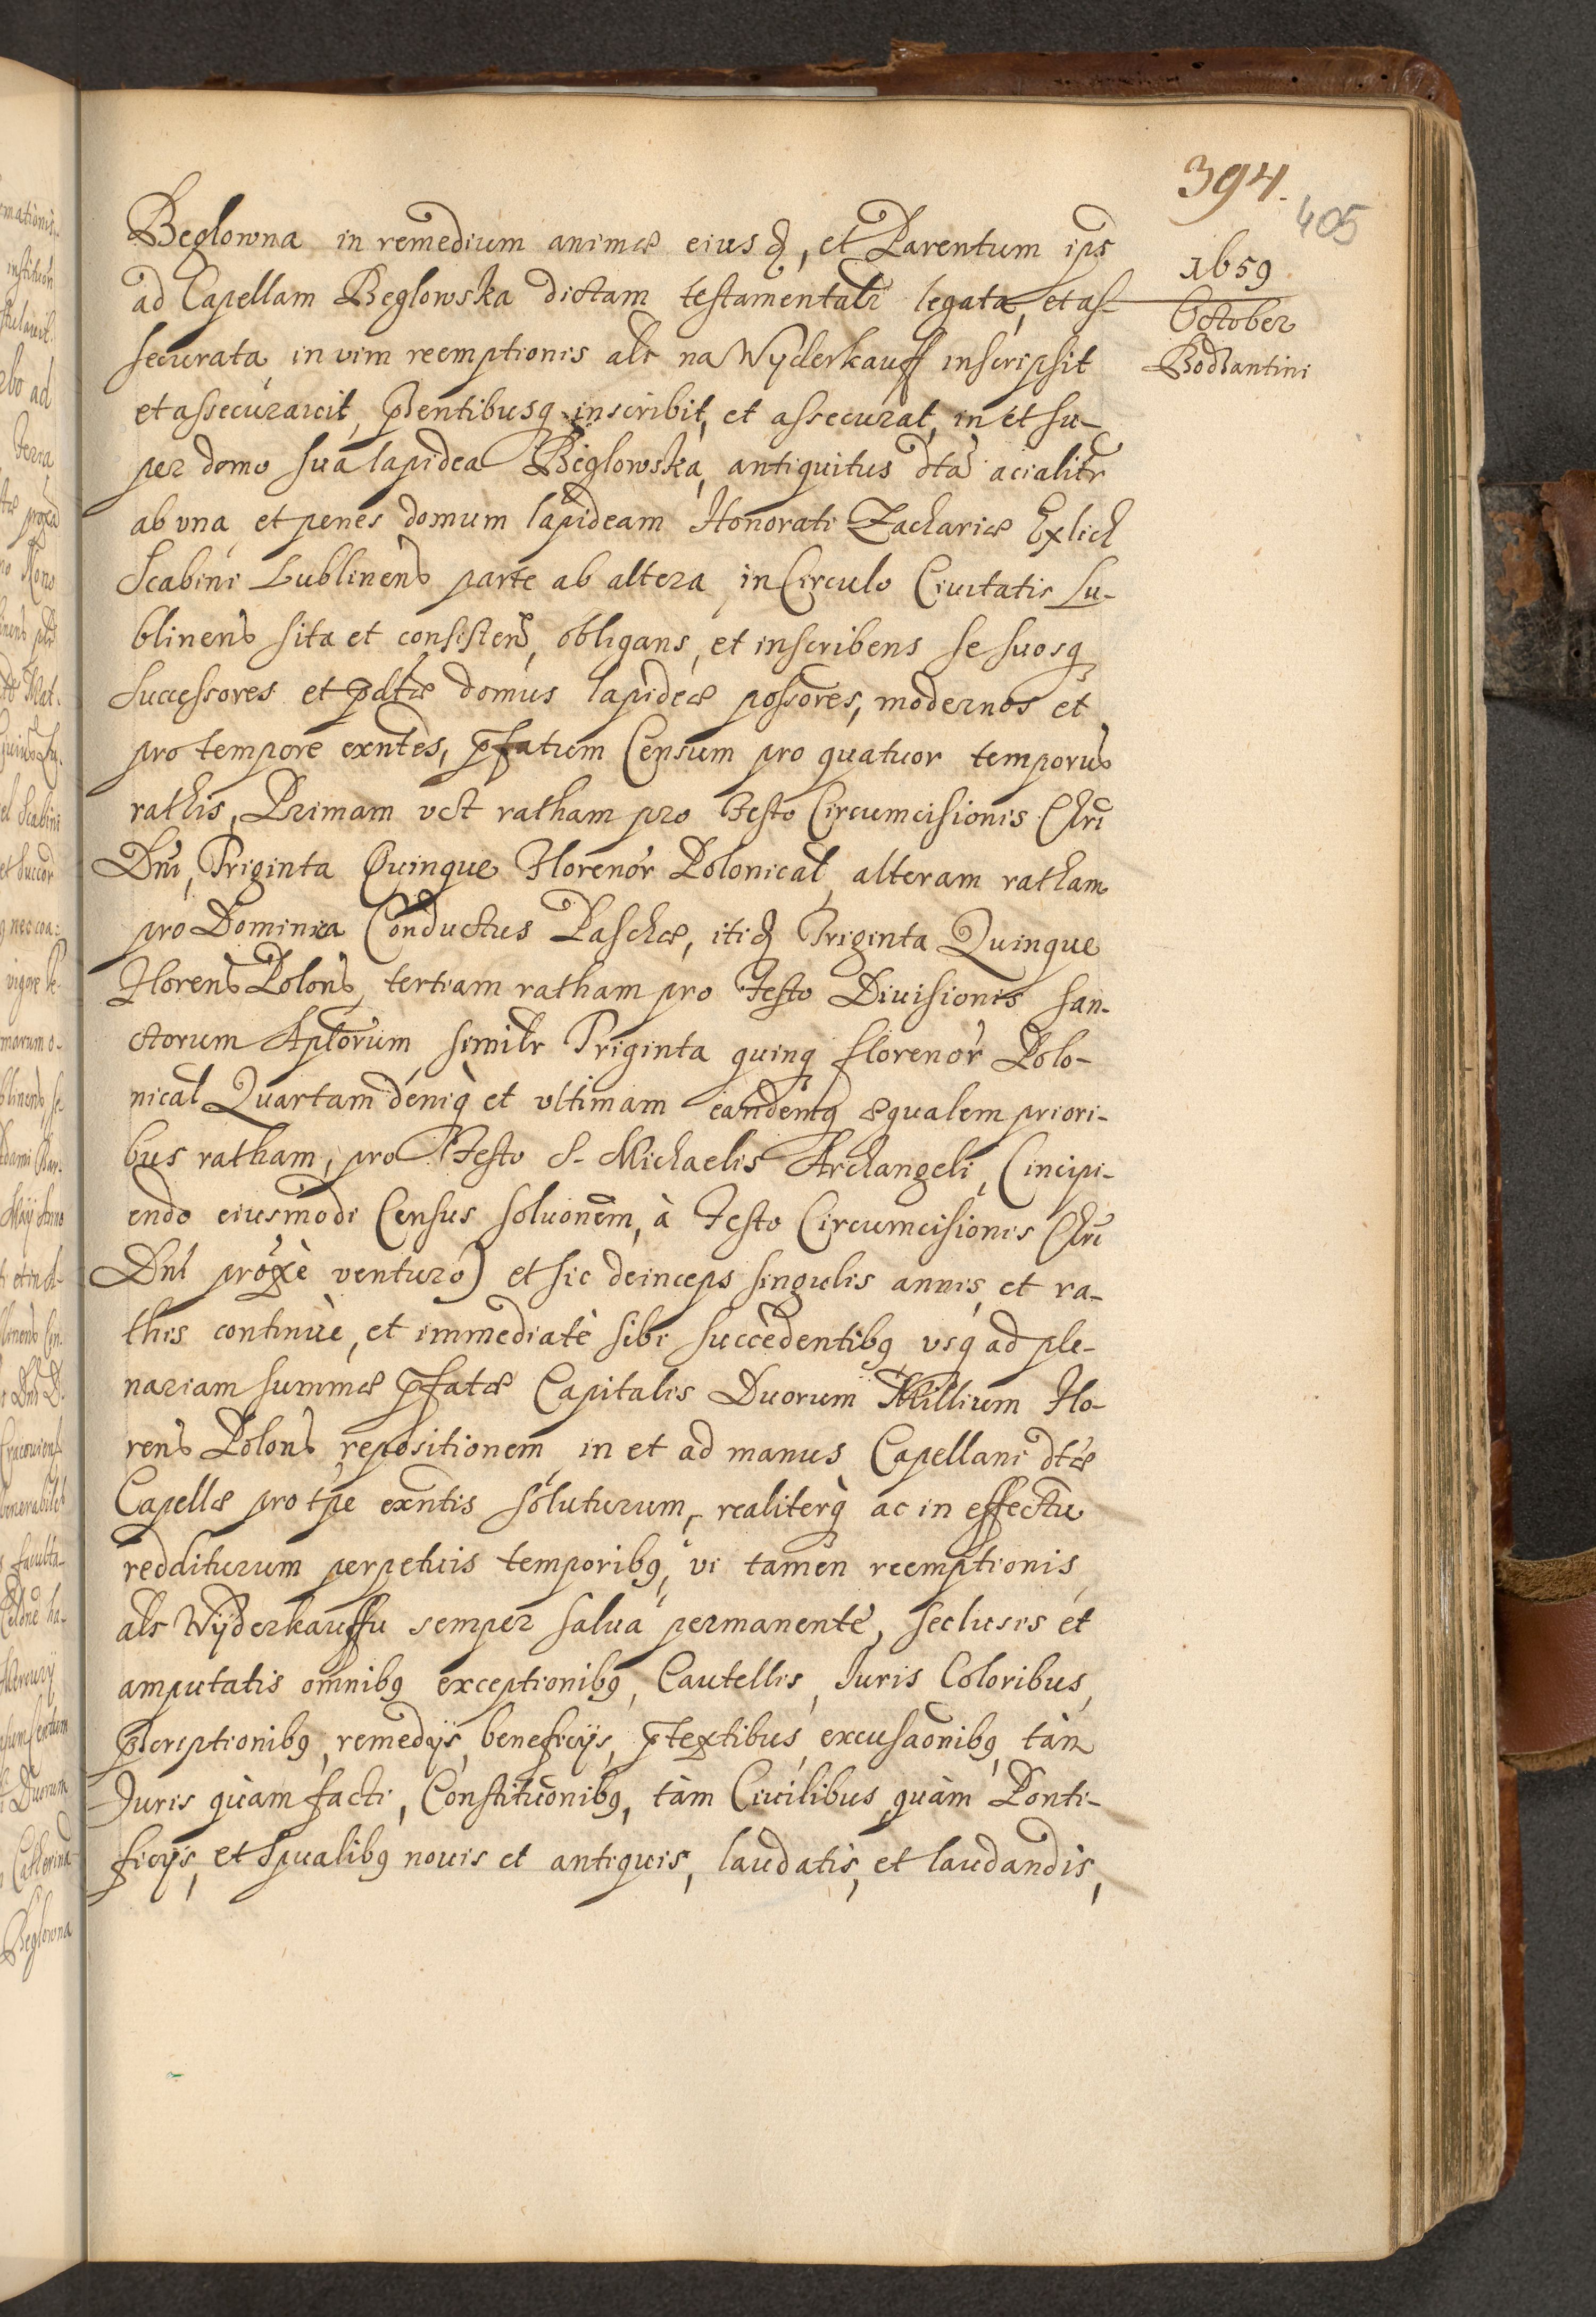 394.
405
1659
October
Bodzantini
Beglowna in remedium animæ eiusd, et Parentum ips
ad Capellam Beglowska dictam testamentalr legata, et as-
securata in vim reemptionis als na Wyderkauff inscripsit
et assecurauit, pñtibusq inscribit, et assecurat, in et su-
per domo sua lapidea Beglowska, antiquitus dta acialitr
ab vna et penes domum lapideam Honorati Zachariæ Exlich
Scabini Lublinens parte ab altera, in Circulo Ciuitatis Lu-
blinens sita et consisten, obligans, et inscribens se suosq
Successores et pdtæ domus lapideæ possores, modernos et
pro tempore exntes, pfatum Censum pro quatuor temporus
rathis, Primam vct ratham pro Festo Circumcisionis Chri
Dni, Triginta Quinque Florenor Polonical, alteram ratham
pro Dominica Conductus Paschæ, itid Triginta Quinque
Florens Polons, tertiam ratham pro Festo Diuisionis san-
ctorum Aplorum similr Triginta quinq florenor Polo-
nical Quartam deniq et vltimam eandemq æqualem priori-
bus ratham, pro Festo S. Michaelis Archangeli, (incipi-
endo eiusmodi Census soluonem, à Festo Circumcisionis Chri
Dni proxè venturo) et sic deinceps singulis annis, et ra-
this continuè, et immediatè sibi succedentibq vsq ad ple-
nariam summæ pfatæ Capitalis Duorum Millium Flo-
rens Polons repositionem in et ad manus Capellani dtæ
Capellæ pro tpe exntis soluturum, realiterq ac in effectu
redditurum perpetuis temporibq, vi tamen reemptionis
als Wyderkauffu semper salua permanente, seclusis et
amputatis omnibq exceptionibq, Cautellis, Iuris Coloribus,
pscriptionibq, remedijs, beneficijs, ptextibus, excusaonibq, tàm
Iuris quàm facti, Constituonibq, tàm Ciuilibus quàm Ponti-
ficijs, et Spualibq nouis et antiquis, laudatis, et laudandis,